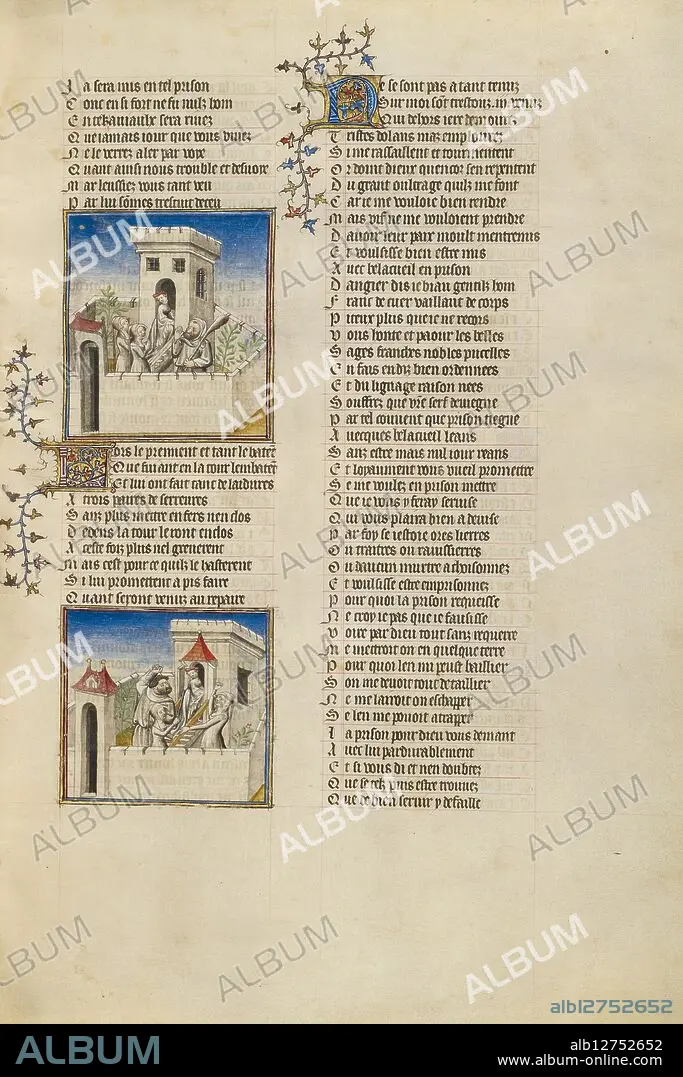 La sera mis en tel prison
Conc en si fort ne fu nulz hom
En tel aniaulx sera riuez
Que iamais iour que vous viuez
Ne le verrez aler par voye
Quant ainsi nous trouble et desuoye
Mar leussiez vous tant veu
Par lui sommes trestuit deceu
Lors le prennent et tant le batent
Que fuiant en la tour lembatent
Et lui ont fait tant de laidures
A trois paires de serreures
Sanz plus mettre en fers nen clos
Dedens la tour le tont enclos
A ceste foiz plus nel greuerent
Mais cest pour ce quilz se hasterent
Si lui promettent a pis faire
Quant seront venuz au repaire
Ne se sont pas a tant tenuz
Sur moi sont trestouz .iii. venuz
Qui dehors iere demourez
Tristes dolans maz emplourez
Si me rassaillent et tourmentent
Or doint dieux quencor sen repentent
Du grant oultrage quilz me font
Car ie me vouloie bien rendre
Mais vif ne me vouloient prendre
Dauoir leur paix moult mentremis
Et voulsisse bien estre mis
Auec belacueil en prison
Dangier dis ie biau gentilz hom
Franc de cuer vaillant de corps
Piteux plus que ie ne recors
Vous honte et paour les belles
Sages franches nobles pucelles
En fais en diz bien ordennees
Et du lignage raison nees
Souffrez que vostre serf deuiegne
Par tel couuent que prison tiegne
Auecques belacueil leans
Sanz estre mais nul iour reans
Et loyaument vous vueil promettre
Se me voulez en prison mettre
Que ie vous y feray seruise
Qui vous plaira bien a deuise
Par foy se iestoie ores lierres
Ou traitres ou rauissierres
Ou daucun murtre achoisonnez
Et voulsisse estre emprisonnez
Pour quoi la prison requeisse
Ne croy ie pas que ie fausisse
Voire par dieu tout sanz requerre
Me mettroit on en quelque terre
Pour quoi len me peust baillier
Son me deuoit tout detaillier
Ne me lairoit on eschapper
Se len me pouoit atrapper
La prison pour dieu vous demant
Auec lui pardurablement
Et si vous di et nen doubtez
Que se telz puis estre trouuez
Que de bien seruir y defaille
ALBUM
alb12752652
ALBUM
alb12752652
www.album-online.com